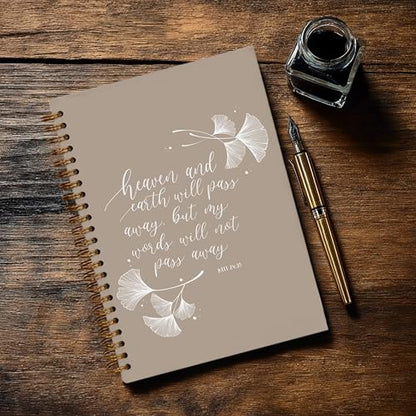 heaven and
earth will pass
away, but my
words will not
pass away